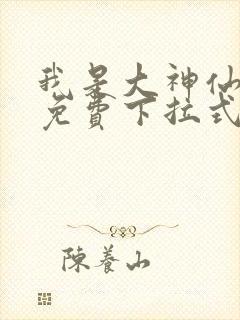 我是大神仙
免費下拉式
陳養山